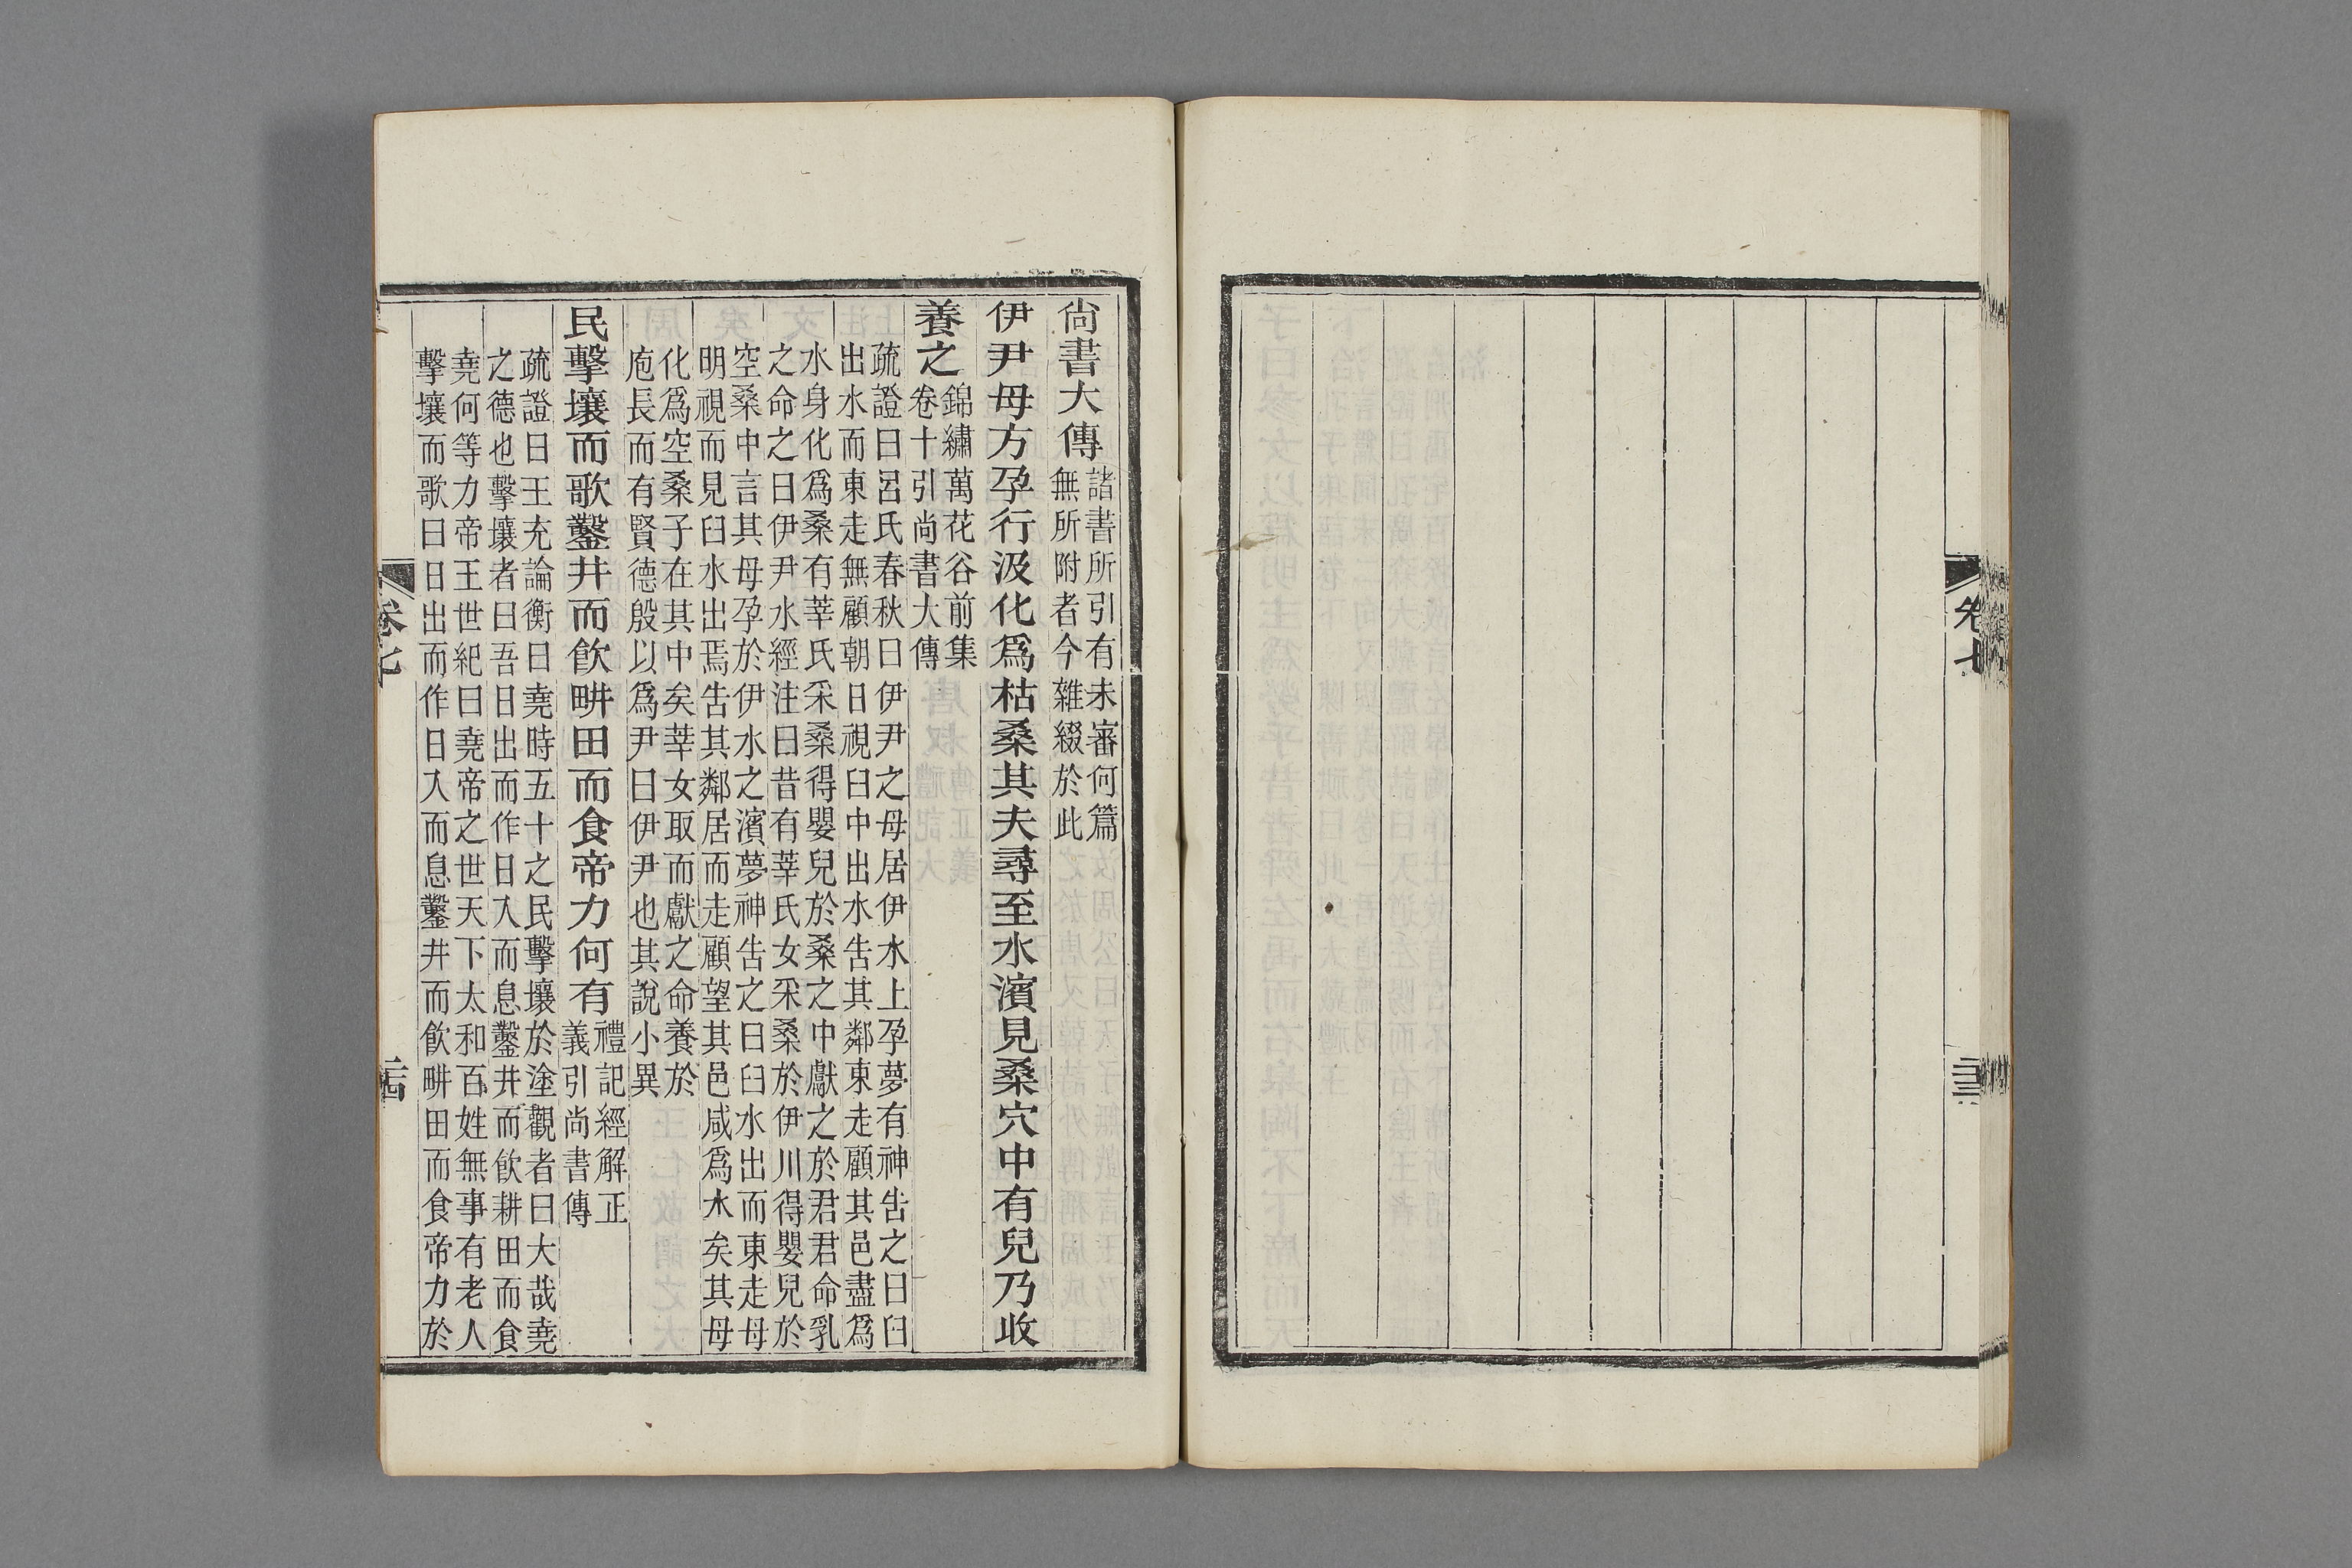 尙書大傳
諸書所引有未審何篇
無所附者今雜綴於此
伊尹母方孕行汲化爲枯桑其夫尋至水濱見桑穴中有兒乃收
養之
錦繡萬花谷前集
卷十引尚書大傳
疏證曰呂氏春秋曰伊尹之母居伊水上孕夢有神告之曰臼
出水而東走無顧朝日視臼中出水告其鄰東走顧其邑盡爲
水身化爲桑有莘氏采桑得嬰兒於桑之中獻之於君君命乳
之命之曰伊尹水經注曰昔有莘氏女采桑於伊川得嬰兒於
空桑中言其母孕於伊水之濱夢神告之曰臼水出而東走母
明視而見臼水出焉告其鄰居而走顧望其邑咸爲水矣其母
化爲空桑子在其中矣莘女取而獻之命養於
庖長而有賢德殷以爲尹曰伊尹也其說小異
民擊壤而歌鑿井而飮畊田而食帝力何有
禮記經解正
義引尚書傳
疏證曰王充論衡曰堯時五十之民擊壤於塗觀者曰大哉堯
之德也擊壤者曰吾日出而作日入而息鑿井而飮耕田而食
堯何等力帝王世紀曰堯帝之世天下太和百姓無事有老人
擊壤而歌曰日出而作日入而息鑿井而飮畊田而食帝力於
卷七